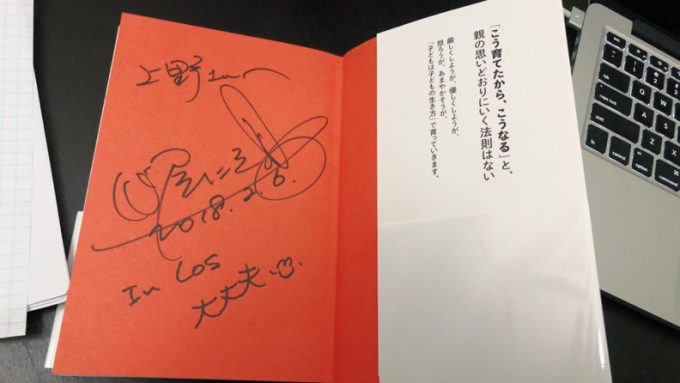 「こう育てたから、こうなる」と、
親の思いどおりにいく法則はない
厳しくしようが、優しくしようが、
怒ろうが、あまやかそうが、
「子どもは子どもの生き方」で育っていきます。
上野
2018.2.6.
In LOS
大丈夫